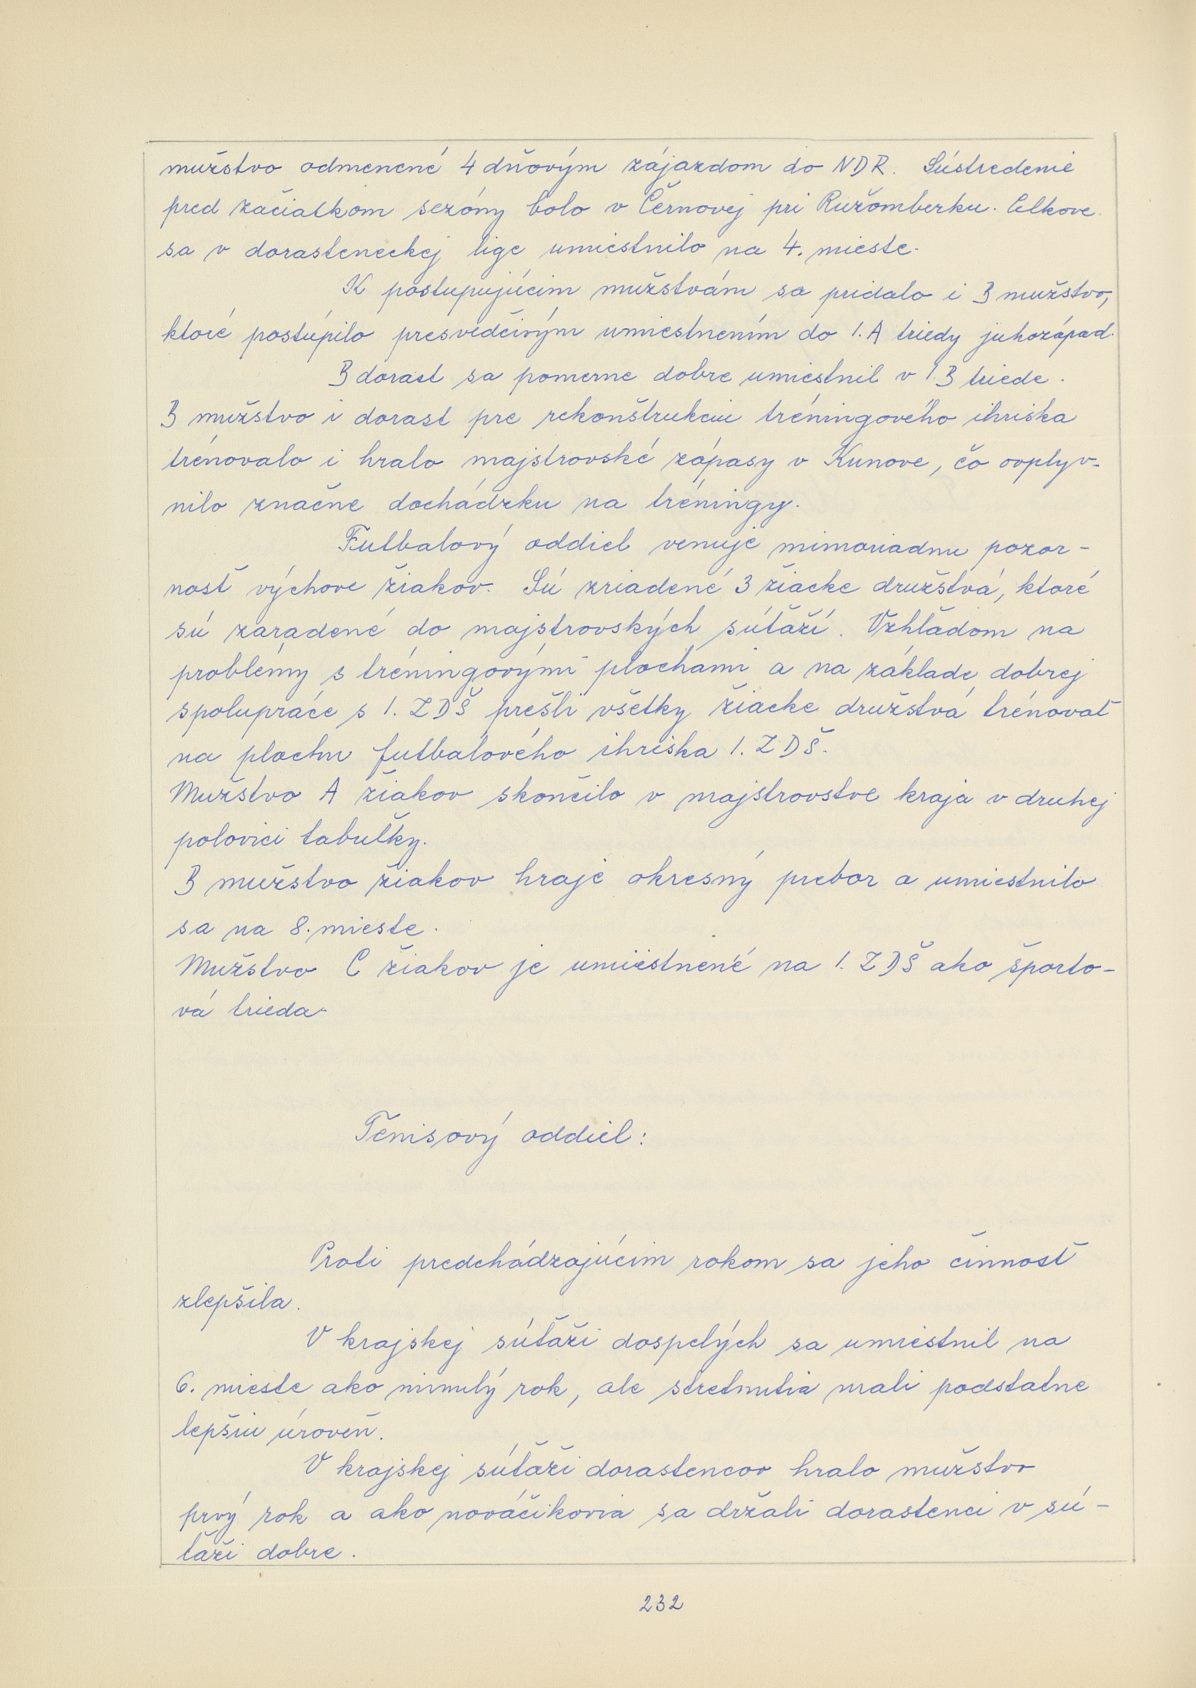 mužstvo odmenené 4 dňovým zájazdom do NDR. Sústredenie
pred začiatkom sezóny bolo v Černovej pri Ružomberku. Celkove
sa v dorasteneckej lige umiestnilo na 4. mieste.
K postupujúcim mužstvám sa pridalo i B mužstvo,
ktoré postúpilo presvedčivým umiestnením do 1. A triedy juhozápad.
B dorast sa pomerne dobre umiestnil v 1. B triede.
B mužstvo i dorast pre rekonštrukciu tréningového ihriska
trénovalo i hralo majstrovské zápasy v Kunove, čo ovplyv-
nilo značne dochádzku na tréningy.
Futbalový oddiel venuje mimoriadnu pozor-
nosť výchove žiakov. Sú zriadené 3 žiacke družstvá, ktoré
sú zaradené do majstrovských súťaží. Vzhľadom na
problémy s tréningovými plochami a na základe dobrej
spolupráce s 1. ZDŠ prešli všetky žiacke družstvá trénovať
na plochu futbalového ihriska 1. ZDŠ.
Mužstvo A žiakov skončilo v majstrovstve kraja v druhej
polovici tabuľky.
B mužstvo žiakov hraje okresný prebor a umiestnilo
sa na 8. mieste.
Mužstvo C žiakov je umiestnené na 1. ZDŠ ako športo-
vá trieda.
Tenisový oddiel:
Proti predchádzajúcim rokom sa jeho činnosť
zlepšila.
V krajskej súťaži dospelých sa umiestnil na
6. mieste ako minulý rok, ale stretnutia mali podstatne
lepšiu úroveň.
V krajskej súťaži dorastencov hralo mužstvo
prvý rok a ako nováčikovia sa držali dorastenci v sú-
ťaži dobre.
232